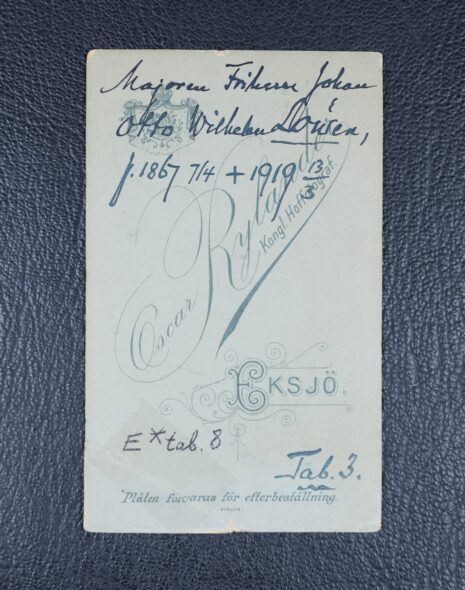 Majoren Friherre Johan
Otto Wilhelm Lovisen,
f. 1867 7/4 + 1919 13/3
Oscar Rylander
Kongl. Hoffotograf.
EKSJÖ.
E x tab. 8
Tab. 3.
Plåten förvaras för efterbeställning.